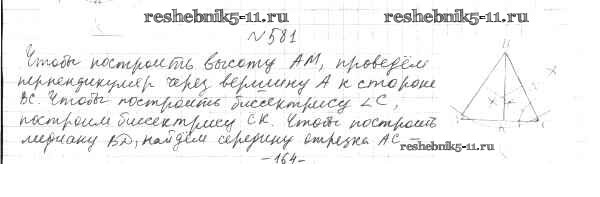 reshebnik5-11.ru
reshebnik5-11.ru
№581
Чтобы построить высоту AM, проведём
перпендикуляр через вершину A к стороне
BC. Чтобы построить биссектрису ∠C,
построим биссектрису CK. Чтобы построить
медиану BD, найдём середину отрезка AC
-164-
reshebnik5-11.ru